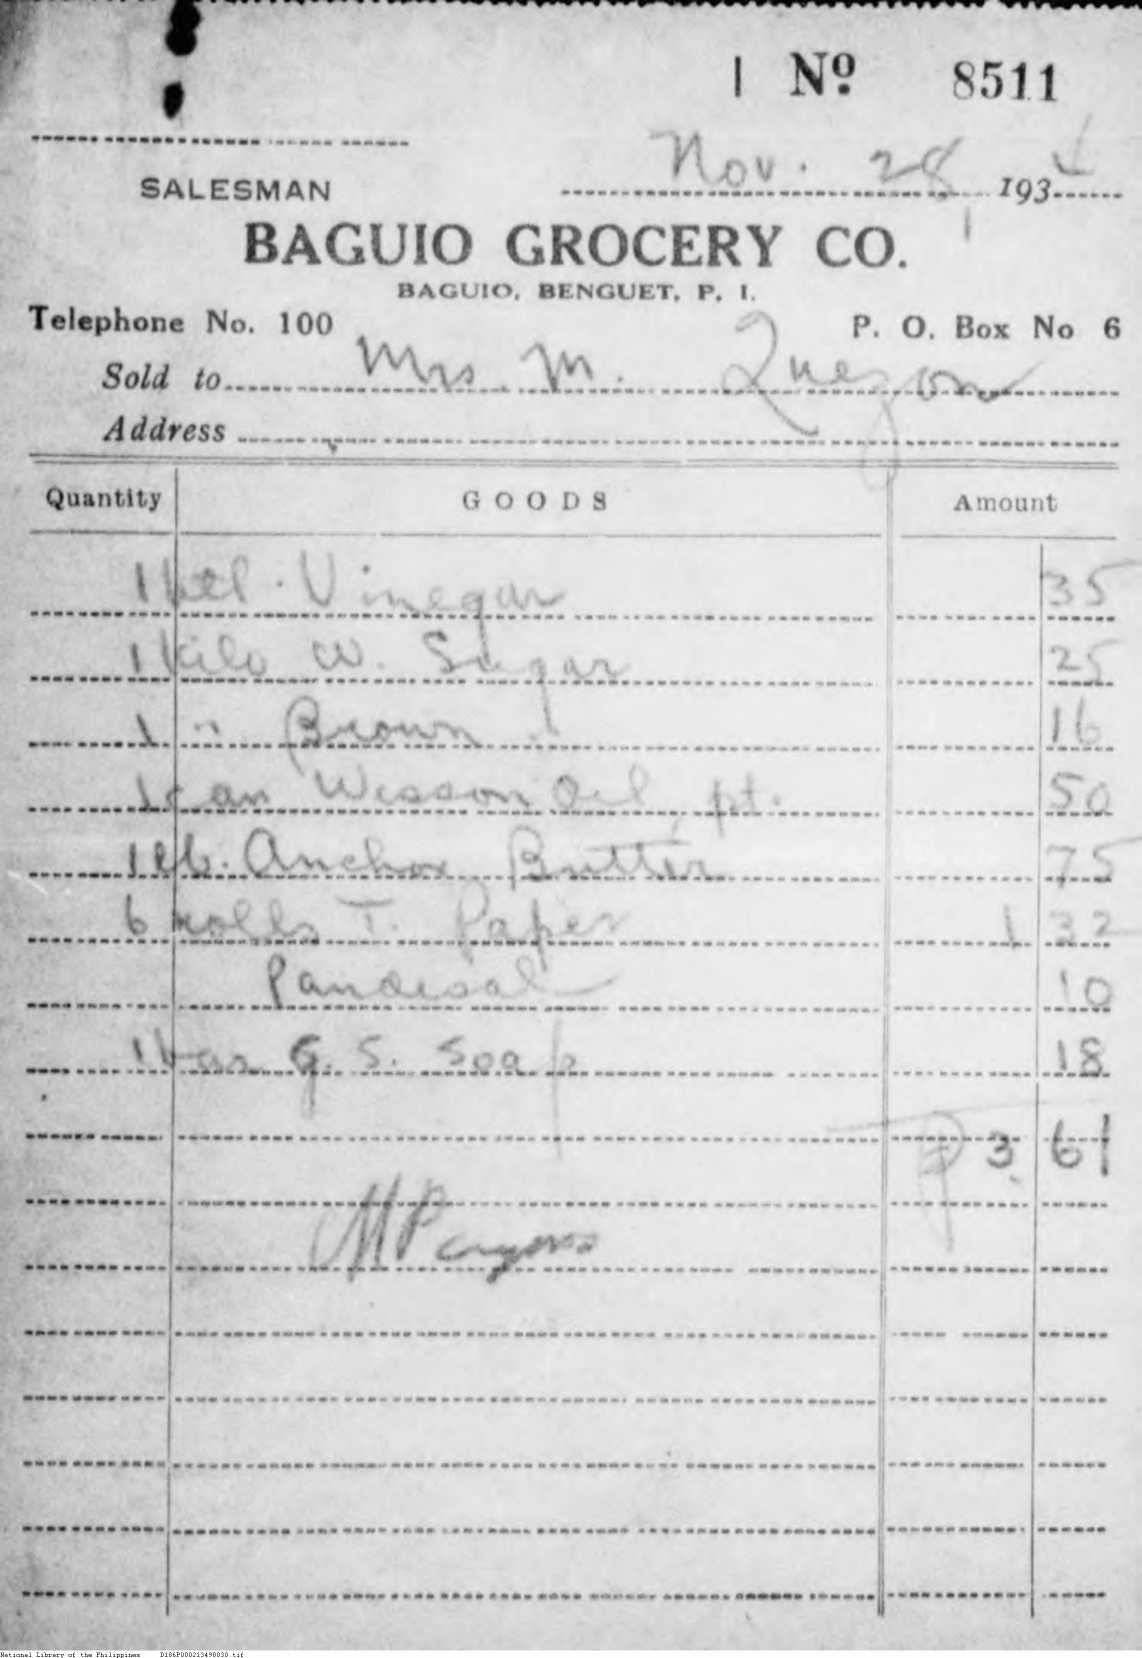 Nº 8511
Nov. 28, 1934
SALESMAN
BAGUIO GROCERY CO.
BAGUIO, BENGUET, P. I.
Telephone No. 100 P. O. Box No 6
Sold to Mrs. M. Quezon
Address
Quantity GOODS Amount
1 btl. Vinegar 35
1 kilo W. Sugar 25
1 " Brown " 16
1 can Wesson Oil, pt. 50
1 lb. Anchor Butter 75
6 rolls T. Paper 1 32
Pandesal 10
1 bar G. S. Soap 18
₱ 3.61
National Library of the Philippines D186P000213498830.tif